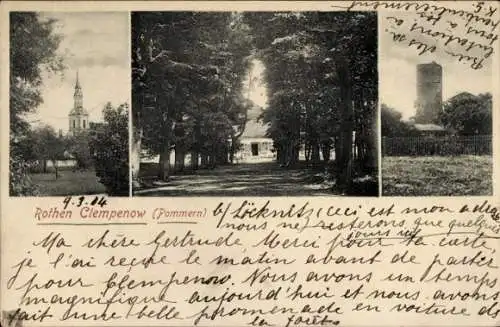 9.3.04
Roth Clempenow (Pommern) b/ Löcknitz, (ceci est mon adresse
nous ne resterons que quelques
jours ici
Ma chère Gertrude, Merci pour ta carte
je l'ai reçue le matin avant de partir
pour Clempenow. Nous avons un temps
magnifique aujourd'hui et nous avons
fait une belle promenade en voiture dans
la forêt